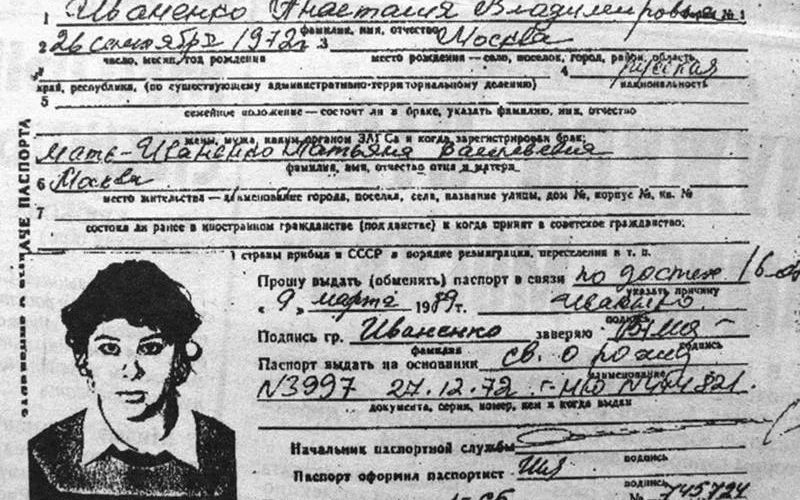 1 Иваненко Анастасия Владимировна № 1
фамилия, имя, отчество
2 26 сентября 1972г 3 Москва
число, месяц, год рождения место рождения — село, поселок, город, район, область
4 русская
край, республика, (по существующему административно-территориальному делению) национальность
5
семейное положение — состоит ли в браке, указать фамилию, имя, отчество
жены, мужа, каким органом ЗАГСа и когда зарегистрирован брак;
Мать-Иваненко Татьяна Васильевна
фамилия, имя, отчество отца и матери
6 Москва
место жительства — наименование города, поселка, села, название улицы, дом №, корпус №, кв. №
7
состоял ли ранее в иностранном гражданстве (подданстве) и когда принят в советское гражданство;
страны прибыл в СССР в порядке реэмиграции, переселения и т. п.
ЗАЯВЛЕНИЕ О ВЫДАЧЕ ПАСПОРТА
Прошу выдать (обменять) паспорт в связи по достиж 16
указать причину
« 9 » марта 19 г. Иваненко
подпись
Подпись гр. Иваненко заверяю
фамилия подпись
Паспорт выдать на основании св. о рожд
наименование
N3997 27.12.72
документа, серия, номер, кем и когда выдан
Начальник паспортной службы
подпись
Паспорт оформил паспортист
подпись
№ 745724